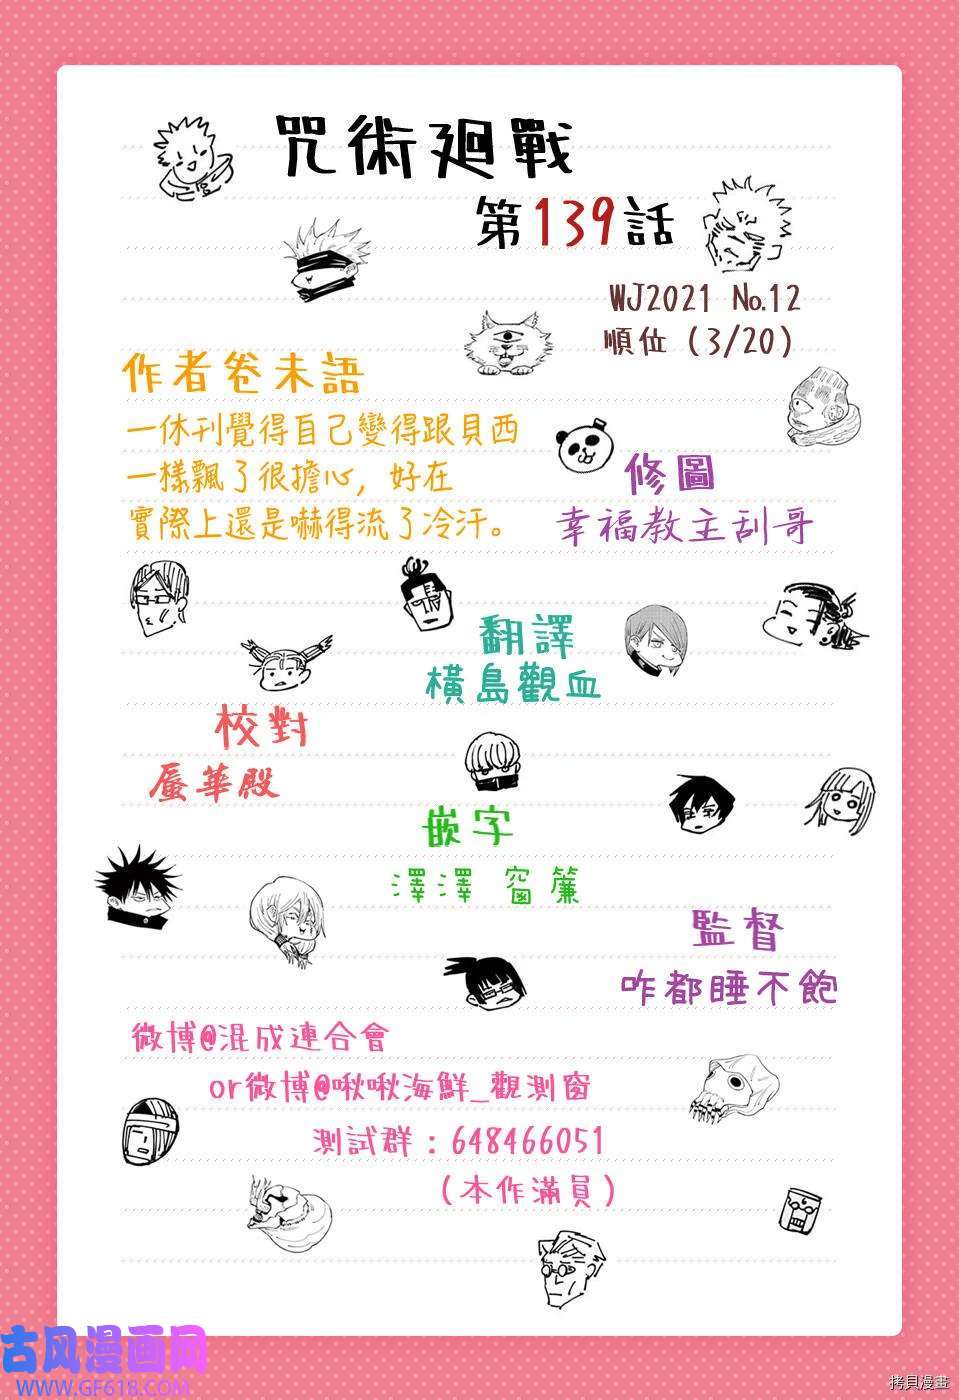 咒術廻戰
第139話
WJ2021 No.12
順位（3/20）
作者卷末語
一休刊覺得自己變得跟貝西
一樣飄了很擔心，好在
實際上還是嚇得流了冷汗。
修圖
幸福教主刮哥
翻譯
橫島觀血
校對
蜃華殿
嵌字
澤澤 窗簾
監督
咋都睡不飽
微博@混成連合會
or微博@啾啾海鮮_觀測窗
測試群：648466051
（本作滿員）
古风漫画网
WWW.GF618.COM
拷貝漫畫